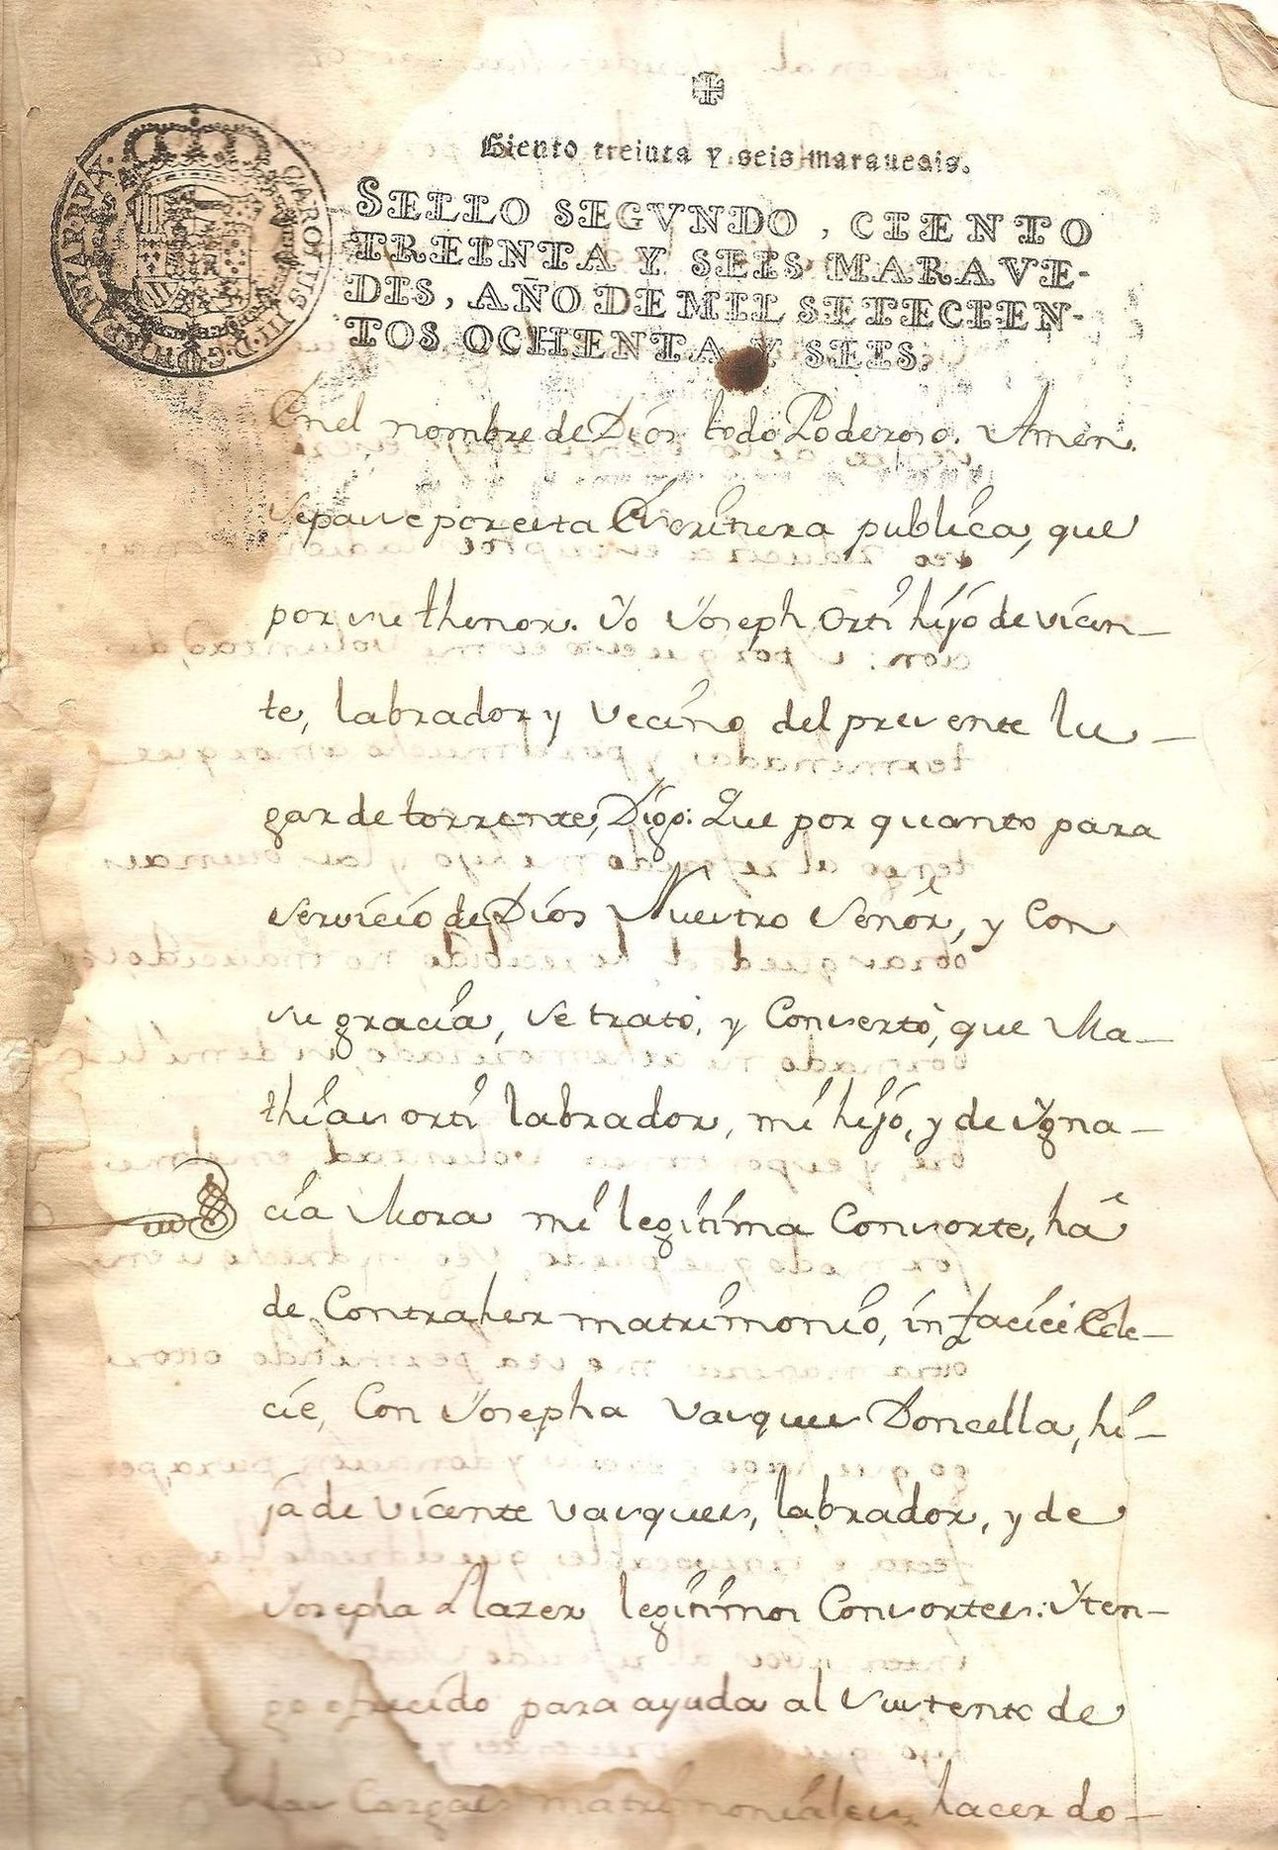 CAROLUS III D. G. HISPANIAR REX
Ciento treinta y seis marauedis.
SELLO SEGVNDO, CIENTO
TREINTA Y SEIS MARAVE-
DIS, AÑO DE MIL SETECIEN-
TOS OCHENTA Y SEIS.
En el nombre de Dios todo Poderoso. Amen.
Sepase por esta Escritura publica, que
por su thenor. Yo Joseph Orti hijo de Vicen-
te, labrador y vecino del presente lu-
gar de torrente, Digo: Que por quanto para
servicio de Dios Nuestro Señor, y con
su gracia, se trató, y Consertó, que Ma-
thias orti labrador, mi hijo, y de Ygna-
cia Mora mi legitima Consorte, ha
de Contraher matrimonio, in facie Ecle-
cie, Con Josepha Vasques Doncella, hi-
ja de Vicente Vasques, labrador, y de
Josepha Llazer legitimos Consortes: Y ten-
go ofrecido para ayuda al sustento de
las Cargas matrimoniales, hacer do-